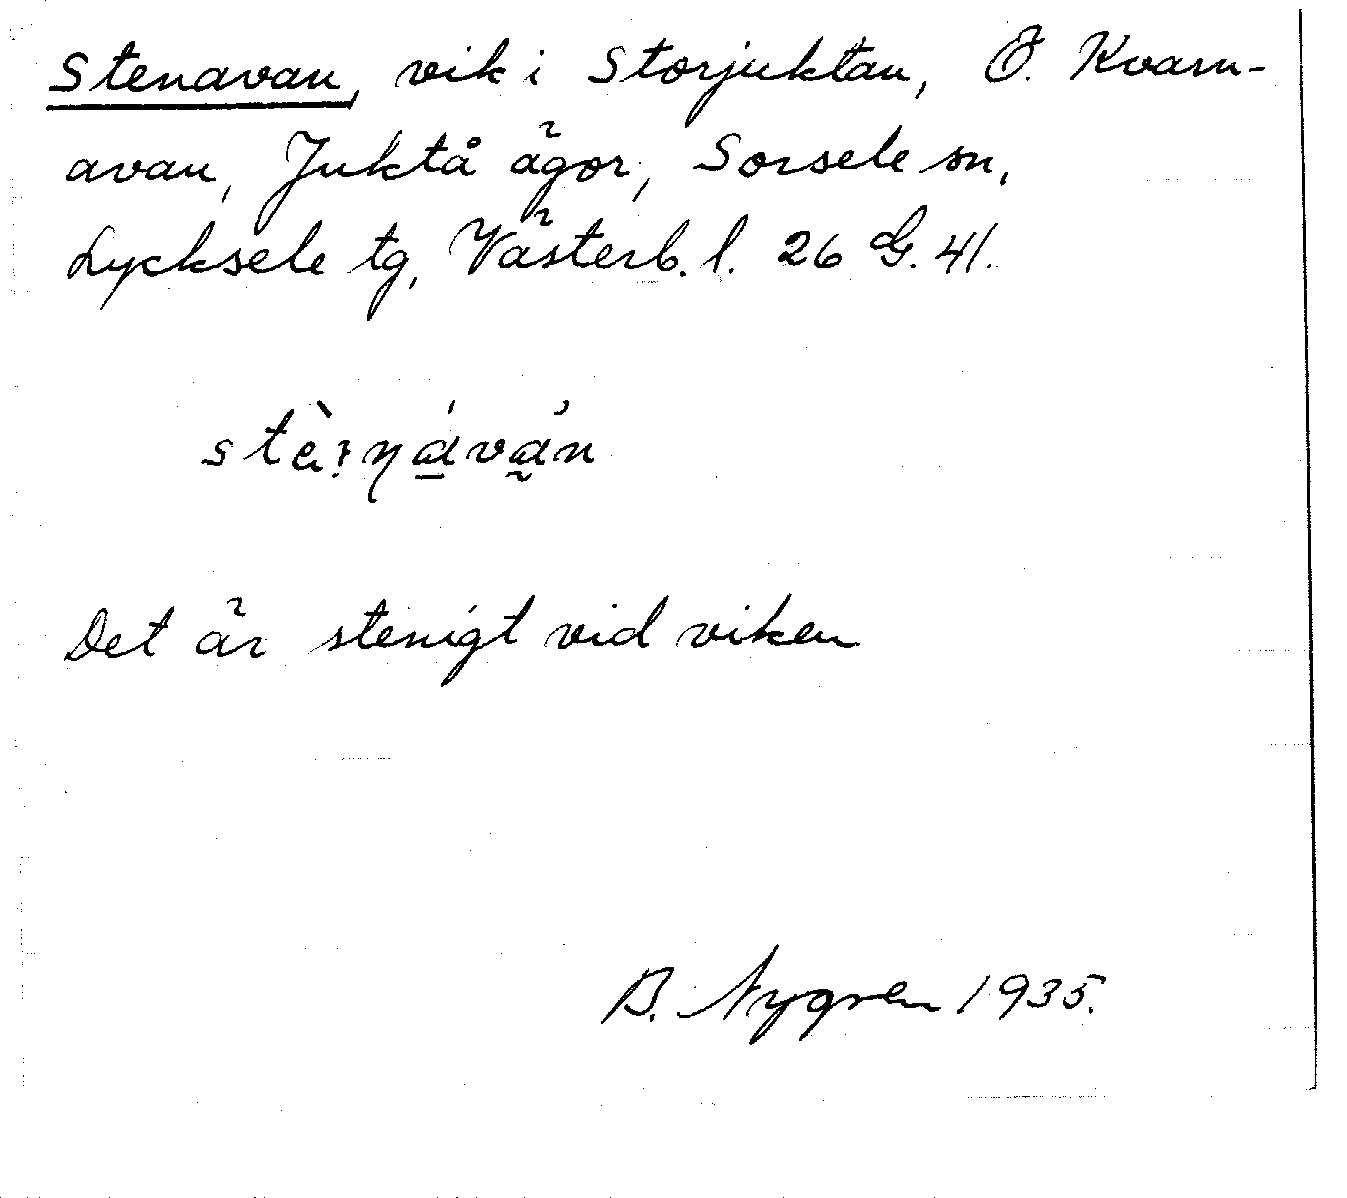 Stenavan, vik i Storjuktan, Ö. Kvarn-
avan, Juktå ägor, Sorsele sn,
Lycksele tg, Västerb. l. 26 G. 41.
Det är stenigt vid viken
B. Nygren 1935.